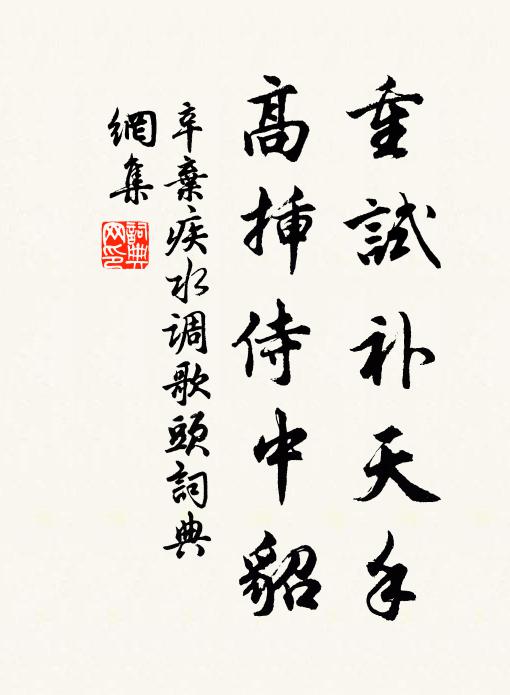 重試补天手
高挿侍中貂
辛棄疾水调歌頭詞典
網集
詞典网印